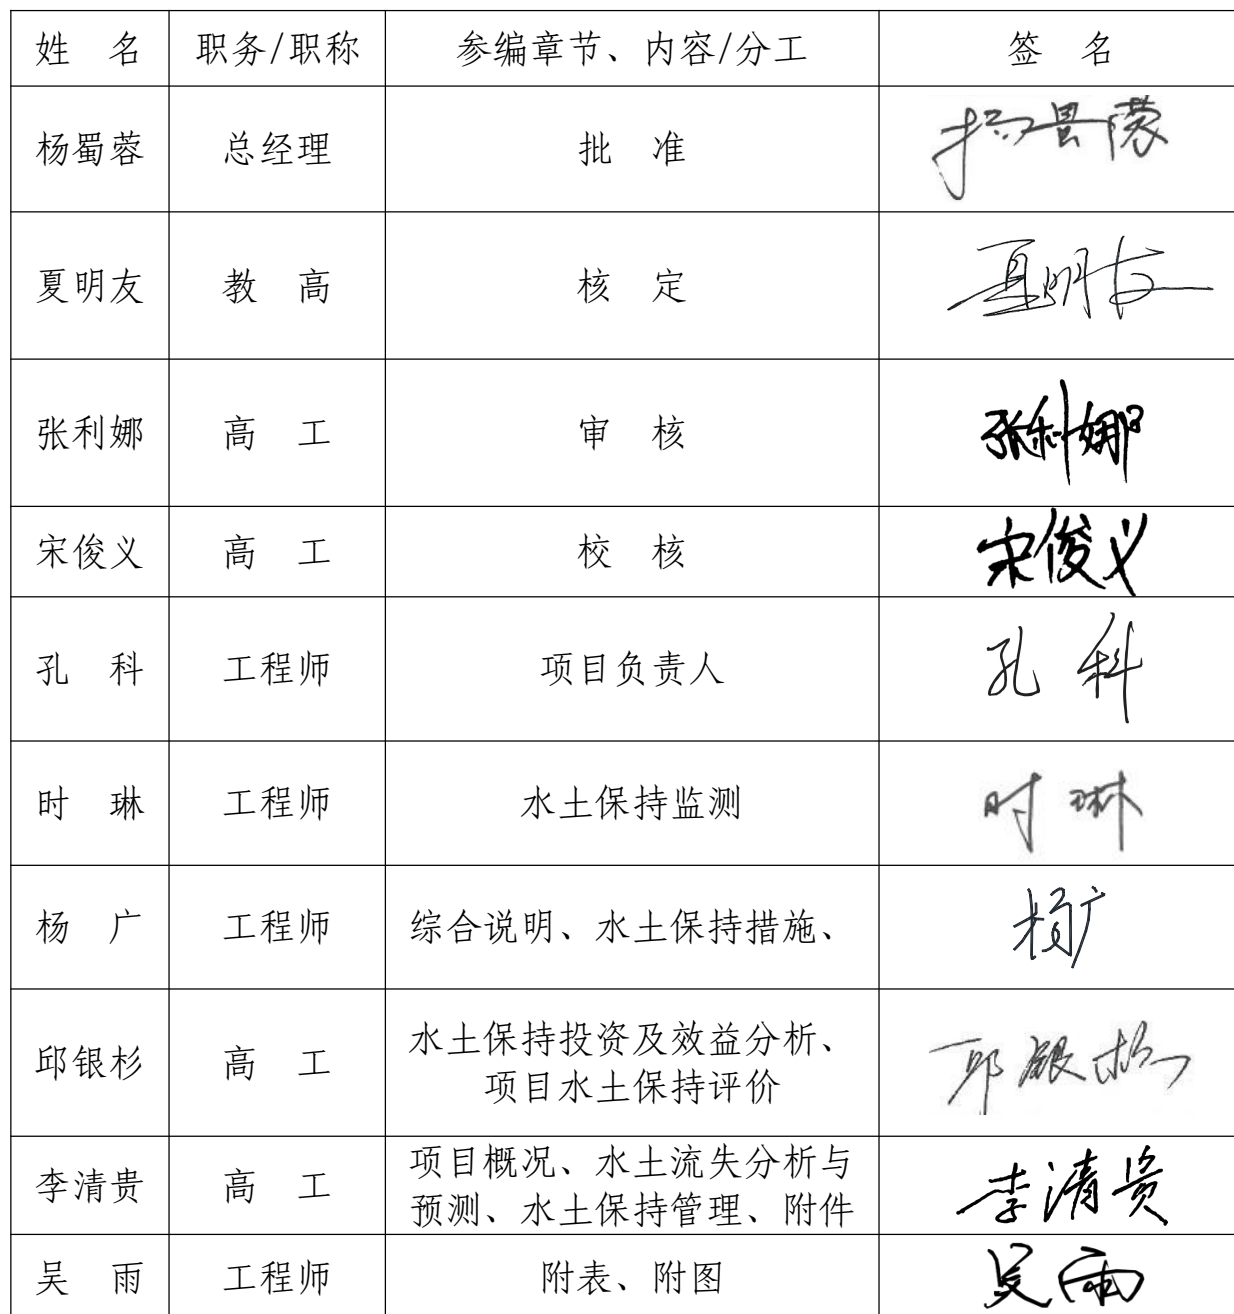 姓 名 职务/职称 参编章节、内容/分工 签 名
杨蜀蓉 总经理 批 准 杨蜀蓉
夏明友 教 高 核 定 夏明友
张利娜 高 工 审 核 张利娜
宋俊义 高 工 校 核 宋俊义
孔 科 工程师 项目负责人 孔 科
时 琳 工程师 水土保持监测 时 琳
杨 广 工程师 综合说明、水土保持措施、 杨广
邱银杉 高 工 水土保持投资及效益分析、
项目水土保持评价 邱银杉
李清贵 高 工 项目概况、水土流失分析与
预测、水土保持管理、附件 李清贵
吴 雨 工程师 附表、附图 吴雨